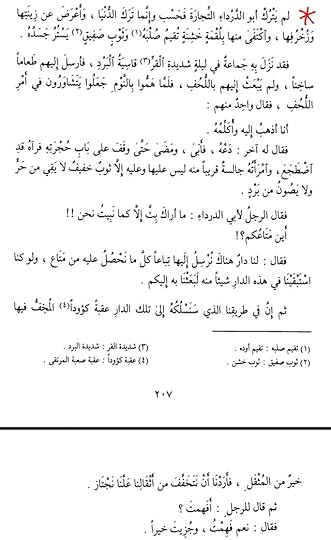 لم يَتْرُكْ أبو الدَّرداءِ التِّجارَةَ فَحَسْب وإنَّما تَرَكَ الدُّنْيَا ، وأَعْرَضَ عن زِينَتِهَا
وَزُخْرُفِها ، وَاكْتَفَى منها بِلُقْمَةٍ خَشِنَةٍ تُقِيمُ صُلْبَهُ(١) وثَوْبٍ صَفِيقٍ(٢) يَسْتُرُ جَسَدَهُ .
فقد نَزَلَ بِهِ جَماعةٌ في ليلةٍ شديدةِ القَرِّ(٣) قاسِيَةِ الْبَرْدِ ، فأرسلَ إليهم طعاماً
ساخِناً ، ولم يَبْعَثْ إليهم باللُّحُفِ ، فلمَّا هَمُّوا بالنَّوْمِ جَعَلُوا يَتَشَاوَرُونَ في أَمْرِ
اللُّحُفِ ، فقال واحِدٌ منهم :
أنا أذهبُ إليه وأُكَلِّمُهُ .
فقال له آخر : دَعْهُ ، فَأَبَى ، وَمَضَى حَتَّى وَقَفَ على بابِ حُجْرَتِهِ فرآه قدِ
اضْطَجَعَ ، وامْرَأَتُهُ جالسةٌ قريباً منه ليس عليها وعليه إلَّا ثوبٌ خفيفٌ لا يَقِي من حَرٍّ
ولا يَصُونُ من بَرْدٍ .
فقال الرجلُ لأبي الدرداءِ : ما أراكَ بِتَّ إلَّا كما نبيتُ نحن !!
أين مَتَاعُكُم؟!
فقال : لنا دارٌ هناك نُرْسِلُ إليها تِبَاعاً كلَّ ما نَحْصُلُ عليه من مَتَاعٍ ، ولو كنا
اسْتَبْقَيْنَا في هذه الدارِ شيئاً منه لَبَعَثْنَا به إليكم .
ثم إنَّ في طريقنا الذي سَنَسْلُكُهُ إلى تلك الدارِ عقبةً كؤوداً(٤) المُخِفُّ فيها
(١) تقيم صلبه : تقيم أوده .
(٣) شديدة القر : شديدة البرد .
(٢) ثوب صفيق : ثوب خشن .
(٤) عقبة كؤوداً : عقبة صعبة المرتقى .
٢٠٧
خيرٌ من المُثْقِلِ ، فأَرَدْنَا أَنْ نَتَخَفَّفَ من أَثْقَالِنا عَلَّنا نَجْتَاز .
ثم قال للرجلِ : أَفَهِمتَ ؟
فقال : نعم فَهِمْتُ ، وجُزِيتَ خيراً .